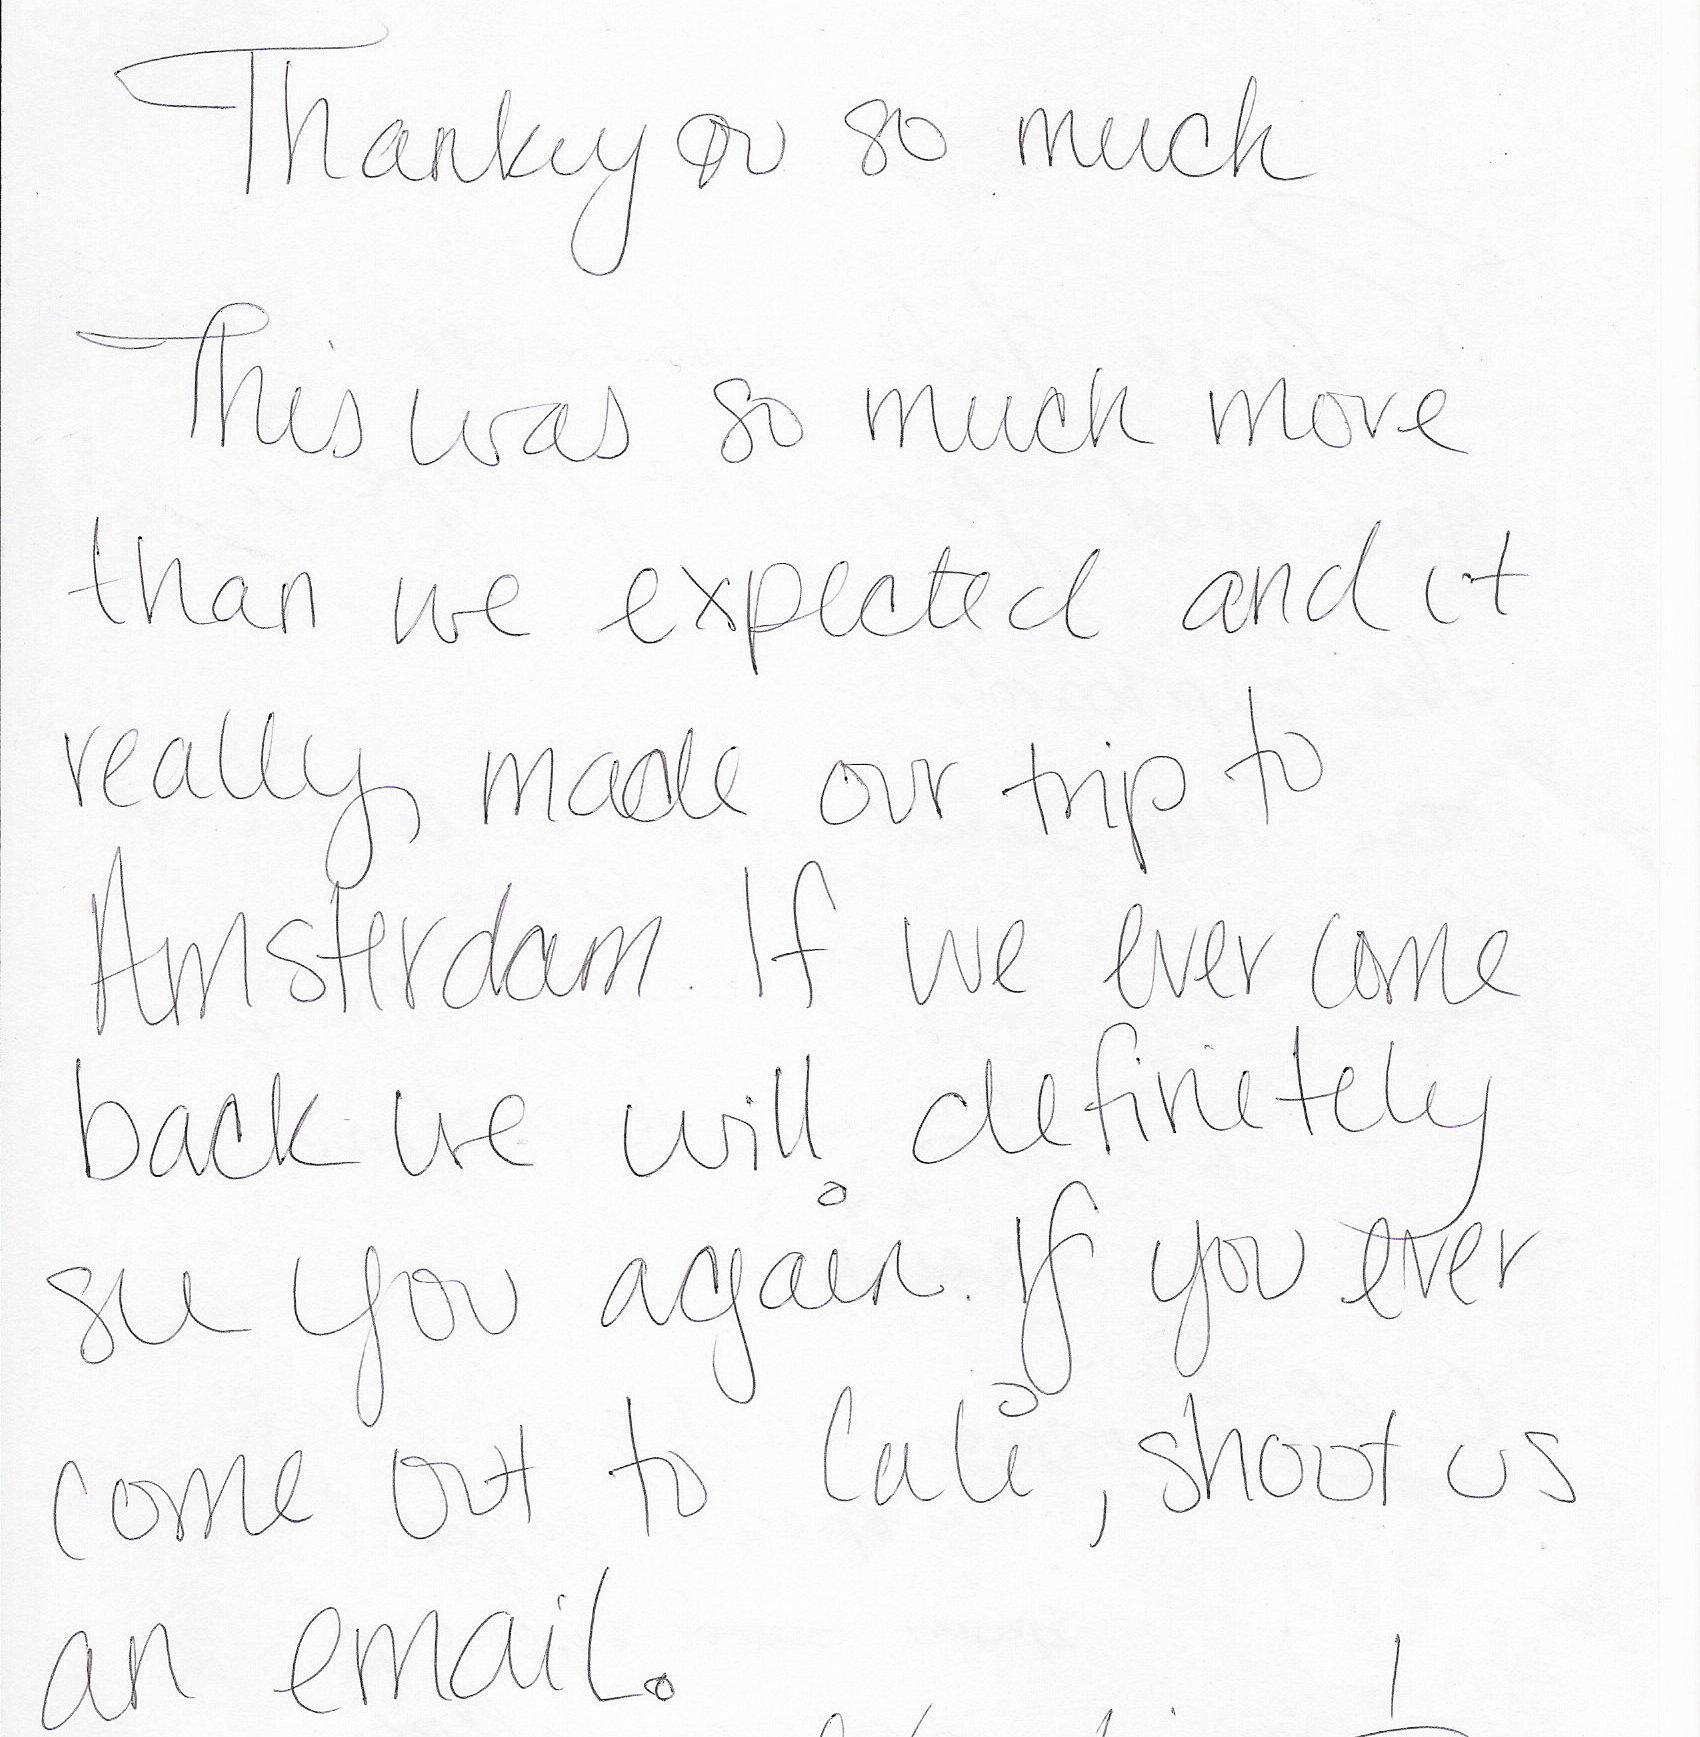 Thankyou so much
This was so much more
than we expected and it
really made our trip to
Amsterdam. If we ever come
back we will definetely
see you again. If you ever
come out to Cali, shoot us
an email.